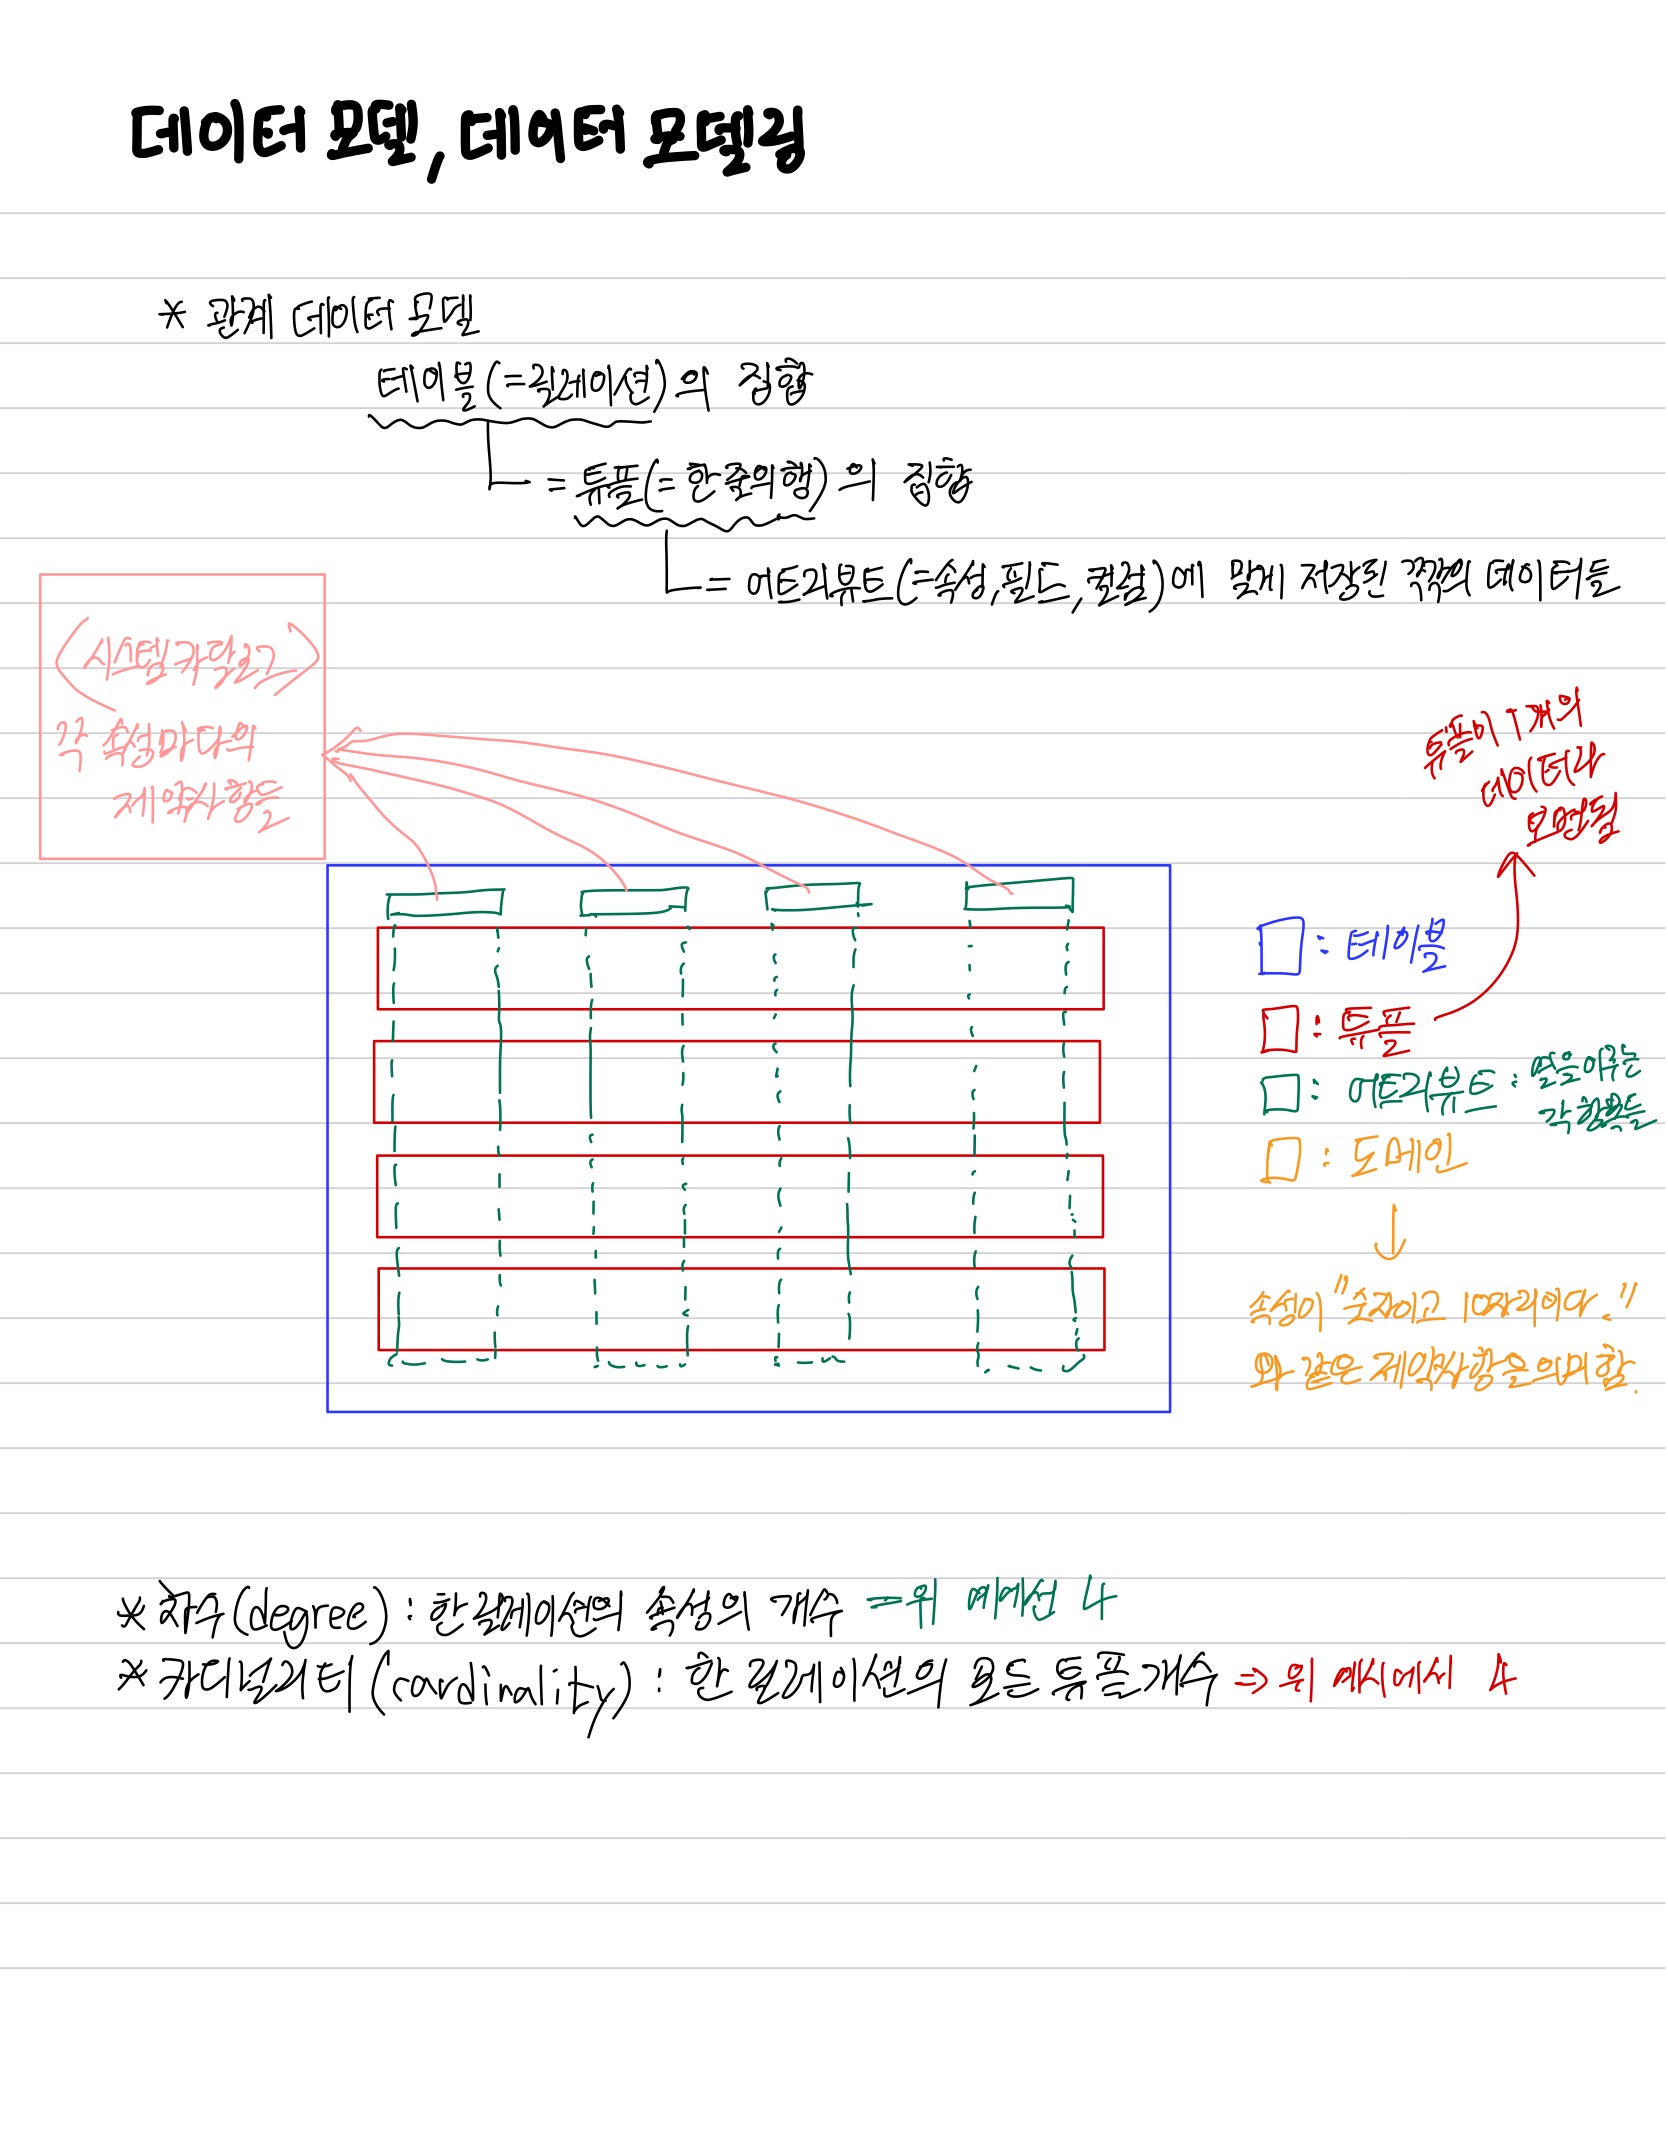 데이터 모델, 데이터 모델링
* 관계 데이터 모델
테이블(=릴레이션)의 집합
= 튜플(= 한 줄의 행)의 집합
= 어트리뷰트(=속성,필드,컬럼)에 맞게 저장된 각각의 데이터들
<시스템 카탈로그>
각 속성마다의
제약사항들
튜플이 1개의
데이터라
보면됨
□ : 테이블
□ : 튜플
□ : 어트리뷰트 : 열을 이루는
각 항목들
□ : 도메인
↓
속성이 "숫자이고 10자리이다."
와 같은 제약사항을 의미함.
* 차수(degree) : 한 릴레이션의 속성의 개수 =위 예에선 4
* 카디널리티(cardinality) : 한 릴레이션의 모든 튜플개수 => 위 예시에서 4